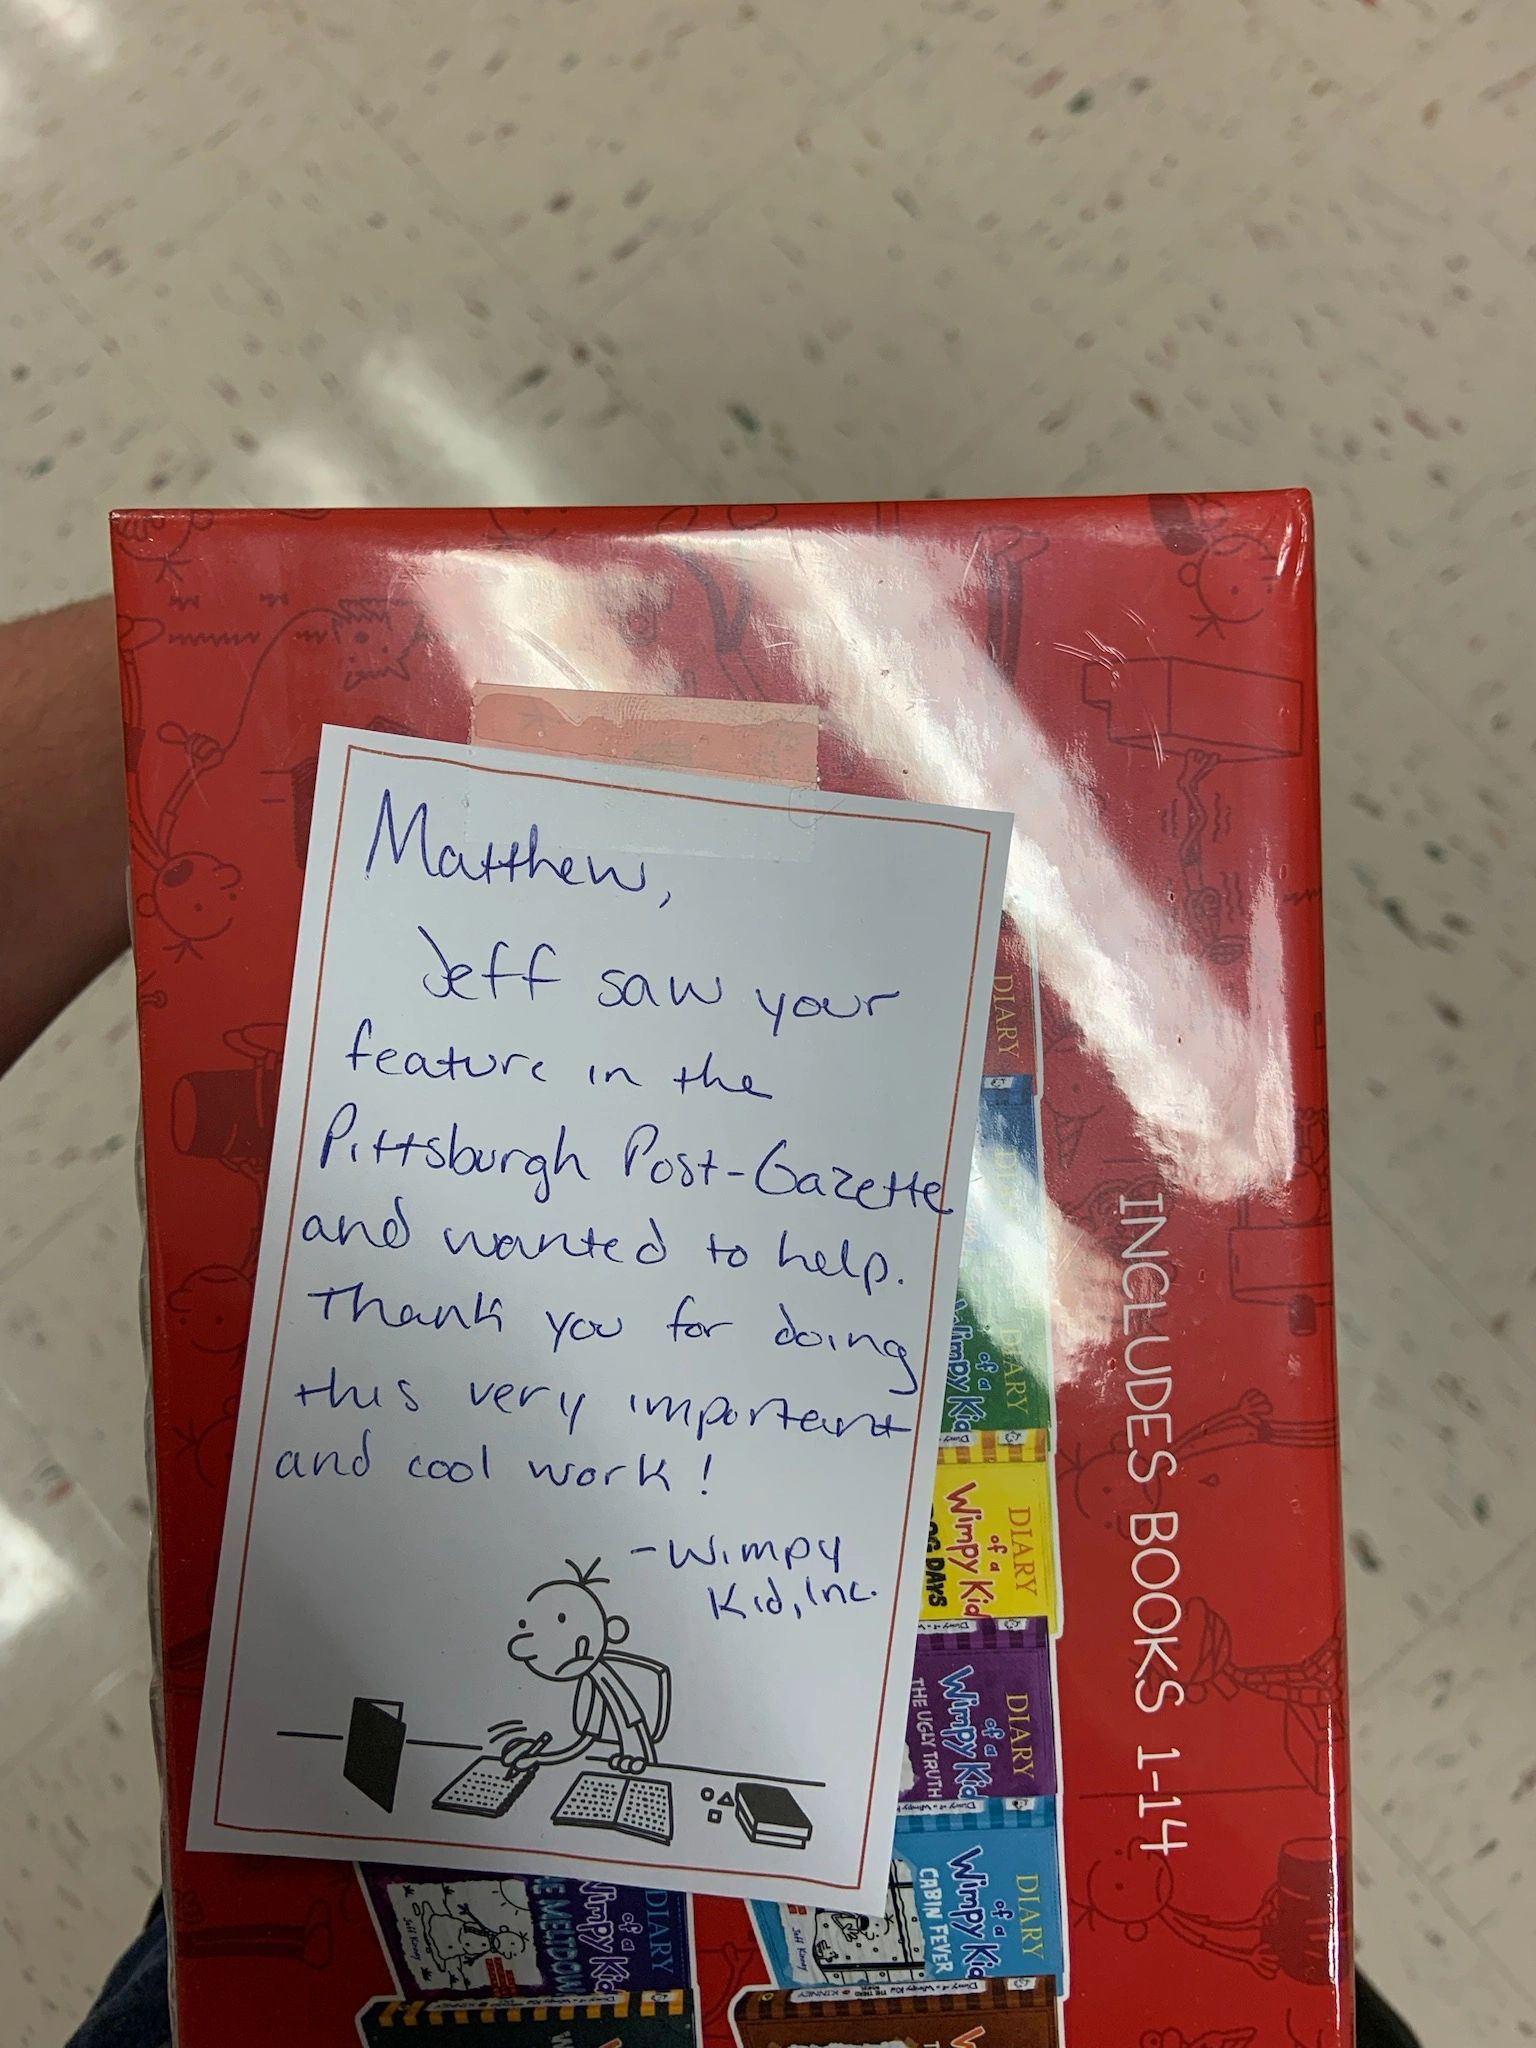 Matthew,
Jeff saw your
feature in the
Pittsburgh Post-Gazette
and wanted to help.
Thank you for doing
this very important
and cool work!
-Wimpy
Kid, Inc.
INCLUDES BOOKS 1-14
DIARY
DIARY
of a
Wimpy Kid
DIARY
of a
Wimpy Kid
DOG DAYS
DIARY
of a
Wimpy Kid
THE UGLY TRUTH
DIARY
of a
Wimpy Kid
CABIN FEVER
Jeff Kinney
DIARY
of a
Wimpy Kid
Jeff Kinney
KINNEY